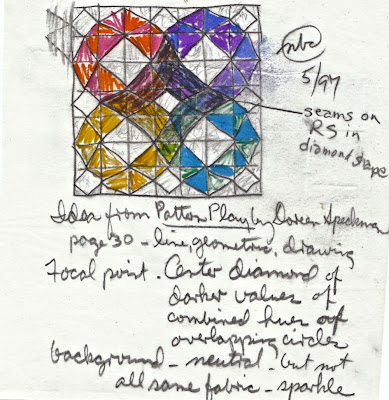 nbc
5/97
seams on
RS in
diamond shape
Idea from Patton Play by Doreen Speckman
page 30 - line, geometric, drawing
Focal point - Center diamond of
darker values of
combined hues of
overlapping circles
background - neutral - but not
all same fabric - sparkle